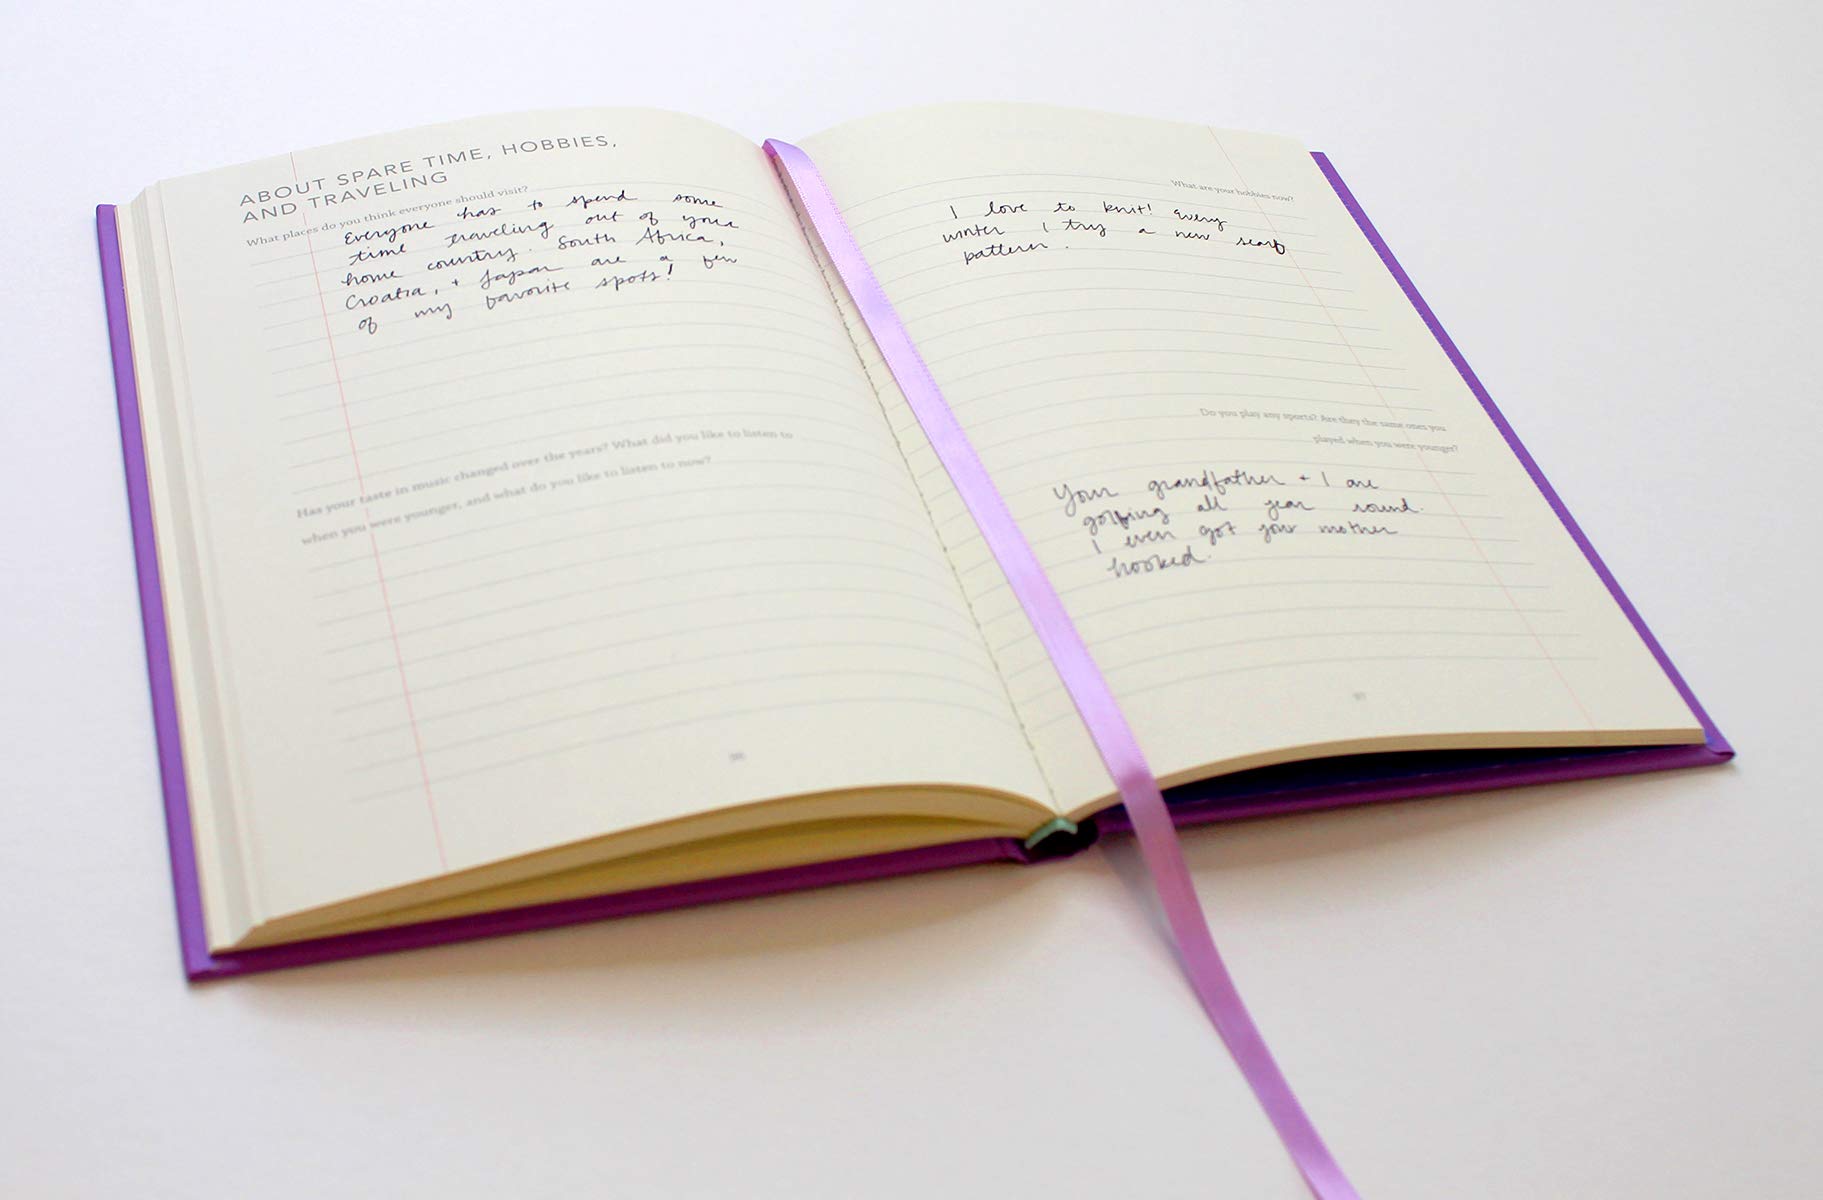 ABOUT SPARE TIME, HOBBIES,
AND TRAVELING
What places do you think everyone should visit?
Everyone has to spend some
time traveling out of your
home country. South Africa,
Croatia, + Japan are a few
of my favorite spots!
Has your taste in music changed over the years? What did you like to listen to
when you were younger, and what do you like to listen to now?
What are your hobbies now?
I love to knit! Every
winter I try a new scarf
pattern.
Do you play any sports? Are they the same ones you
played when you were younger?
Your grandfather + I are
golfing all year round.
I even got your mother
hooked.